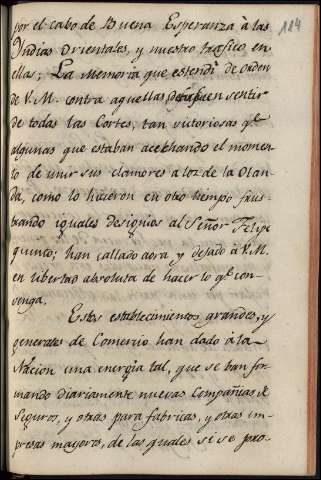 184
por el cabo de Buena Esperanza à las
Yndias Orientales, y nuestro trafico en
ellas; La Memoria que estendi de orden
de V. M. contra aquellas, fue en sentir
de todas las Cortes, tan victoriosas qe.
algunas que estaban acechando el momen
to de unir sus clamores a los de la Olan
da, como lo hicieron en otro tiempo frus
trando iguales designios al Señor Felipe
quinto; han callado aora, y dejado à V. M.
en libertad absoluta de hacer lo qe. con
venga.
Estos establecimientos grandes, y
generales de Comercio han dado à la
Nacion una energia tal, que se ban for
mando diariamente nuevas Compañias de
Seguros, y otras para fabricas, y otras em
presas mayores, de las quales si se pro-